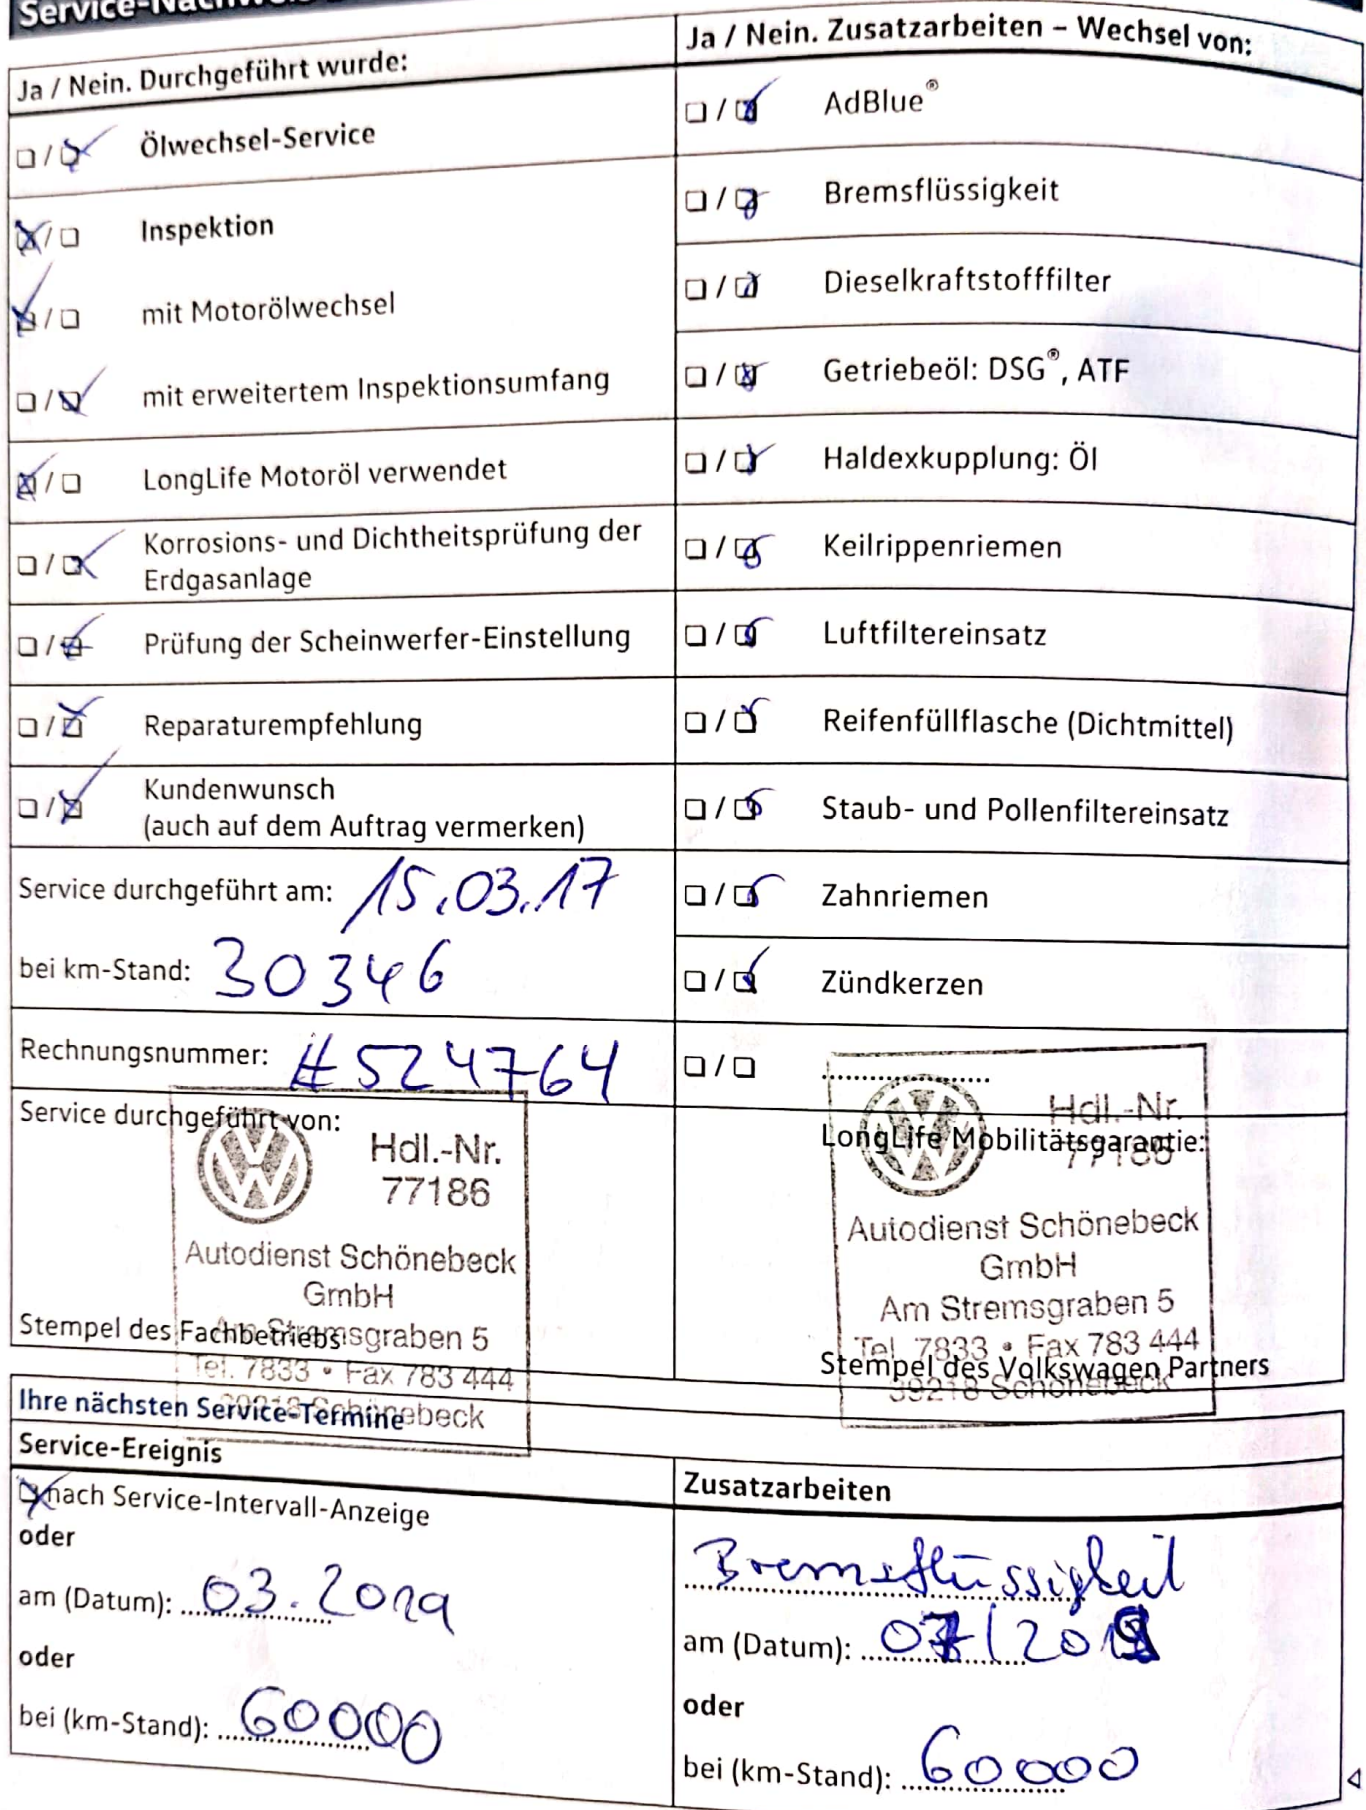 Service-Nachweis
Ja / Nein. Durchgeführt wurde:
Ölwechsel-Service
Inspektion
mit Motorölwechsel
mit erweitertem Inspektionsumfang
LongLife Motoröl verwendet
Korrosions- und Dichtheitsprüfung der
Erdgasanlage
Prüfung der Scheinwerfer-Einstellung
Reparaturempfehlung
Kundenwunsch
(auch auf dem Auftrag vermerken)
Service durchgeführt am: 15.03.17
bei km-Stand: 30346
Rechnungsnummer: #524764
Service durchgeführt von:
Hdl.-Nr.
77186
Autodienst Schönebeck
GmbH
Am Stremsgraben 5
Stempel des Fachbetriebs
Tel. 7833 • Fax 783 444
39218 Schönebeck
Ja / Nein. Zusatzarbeiten – Wechsel von:
AdBlue®
Bremsflüssigkeit
Dieselkraftstofffilter
Getriebeöl: DSG®, ATF
Haldexkupplung: Öl
Keilrippenriemen
Luftfiltereinsatz
Reifenfüllflasche (Dichtmittel)
Staub- und Pollenfiltereinsatz
Zahnriemen
Zündkerzen
LongLife Mobilitätsgarantie:
Hdl.-Nr.
77186
Autodienst Schönebeck
GmbH
Am Stremsgraben 5
Tel. 7833 • Fax 783 444
Stempel des Volkswagen Partners
39218 Schönebeck
Ihre nächsten Service-Termine
Service-Ereignis
nach Service-Intervall-Anzeige
oder
am (Datum): 03.2019
oder
bei (km-Stand): 60000
Zusatzarbeiten
Bremsflüssigkeit
am (Datum): 07/2019
oder
bei (km-Stand): 60000